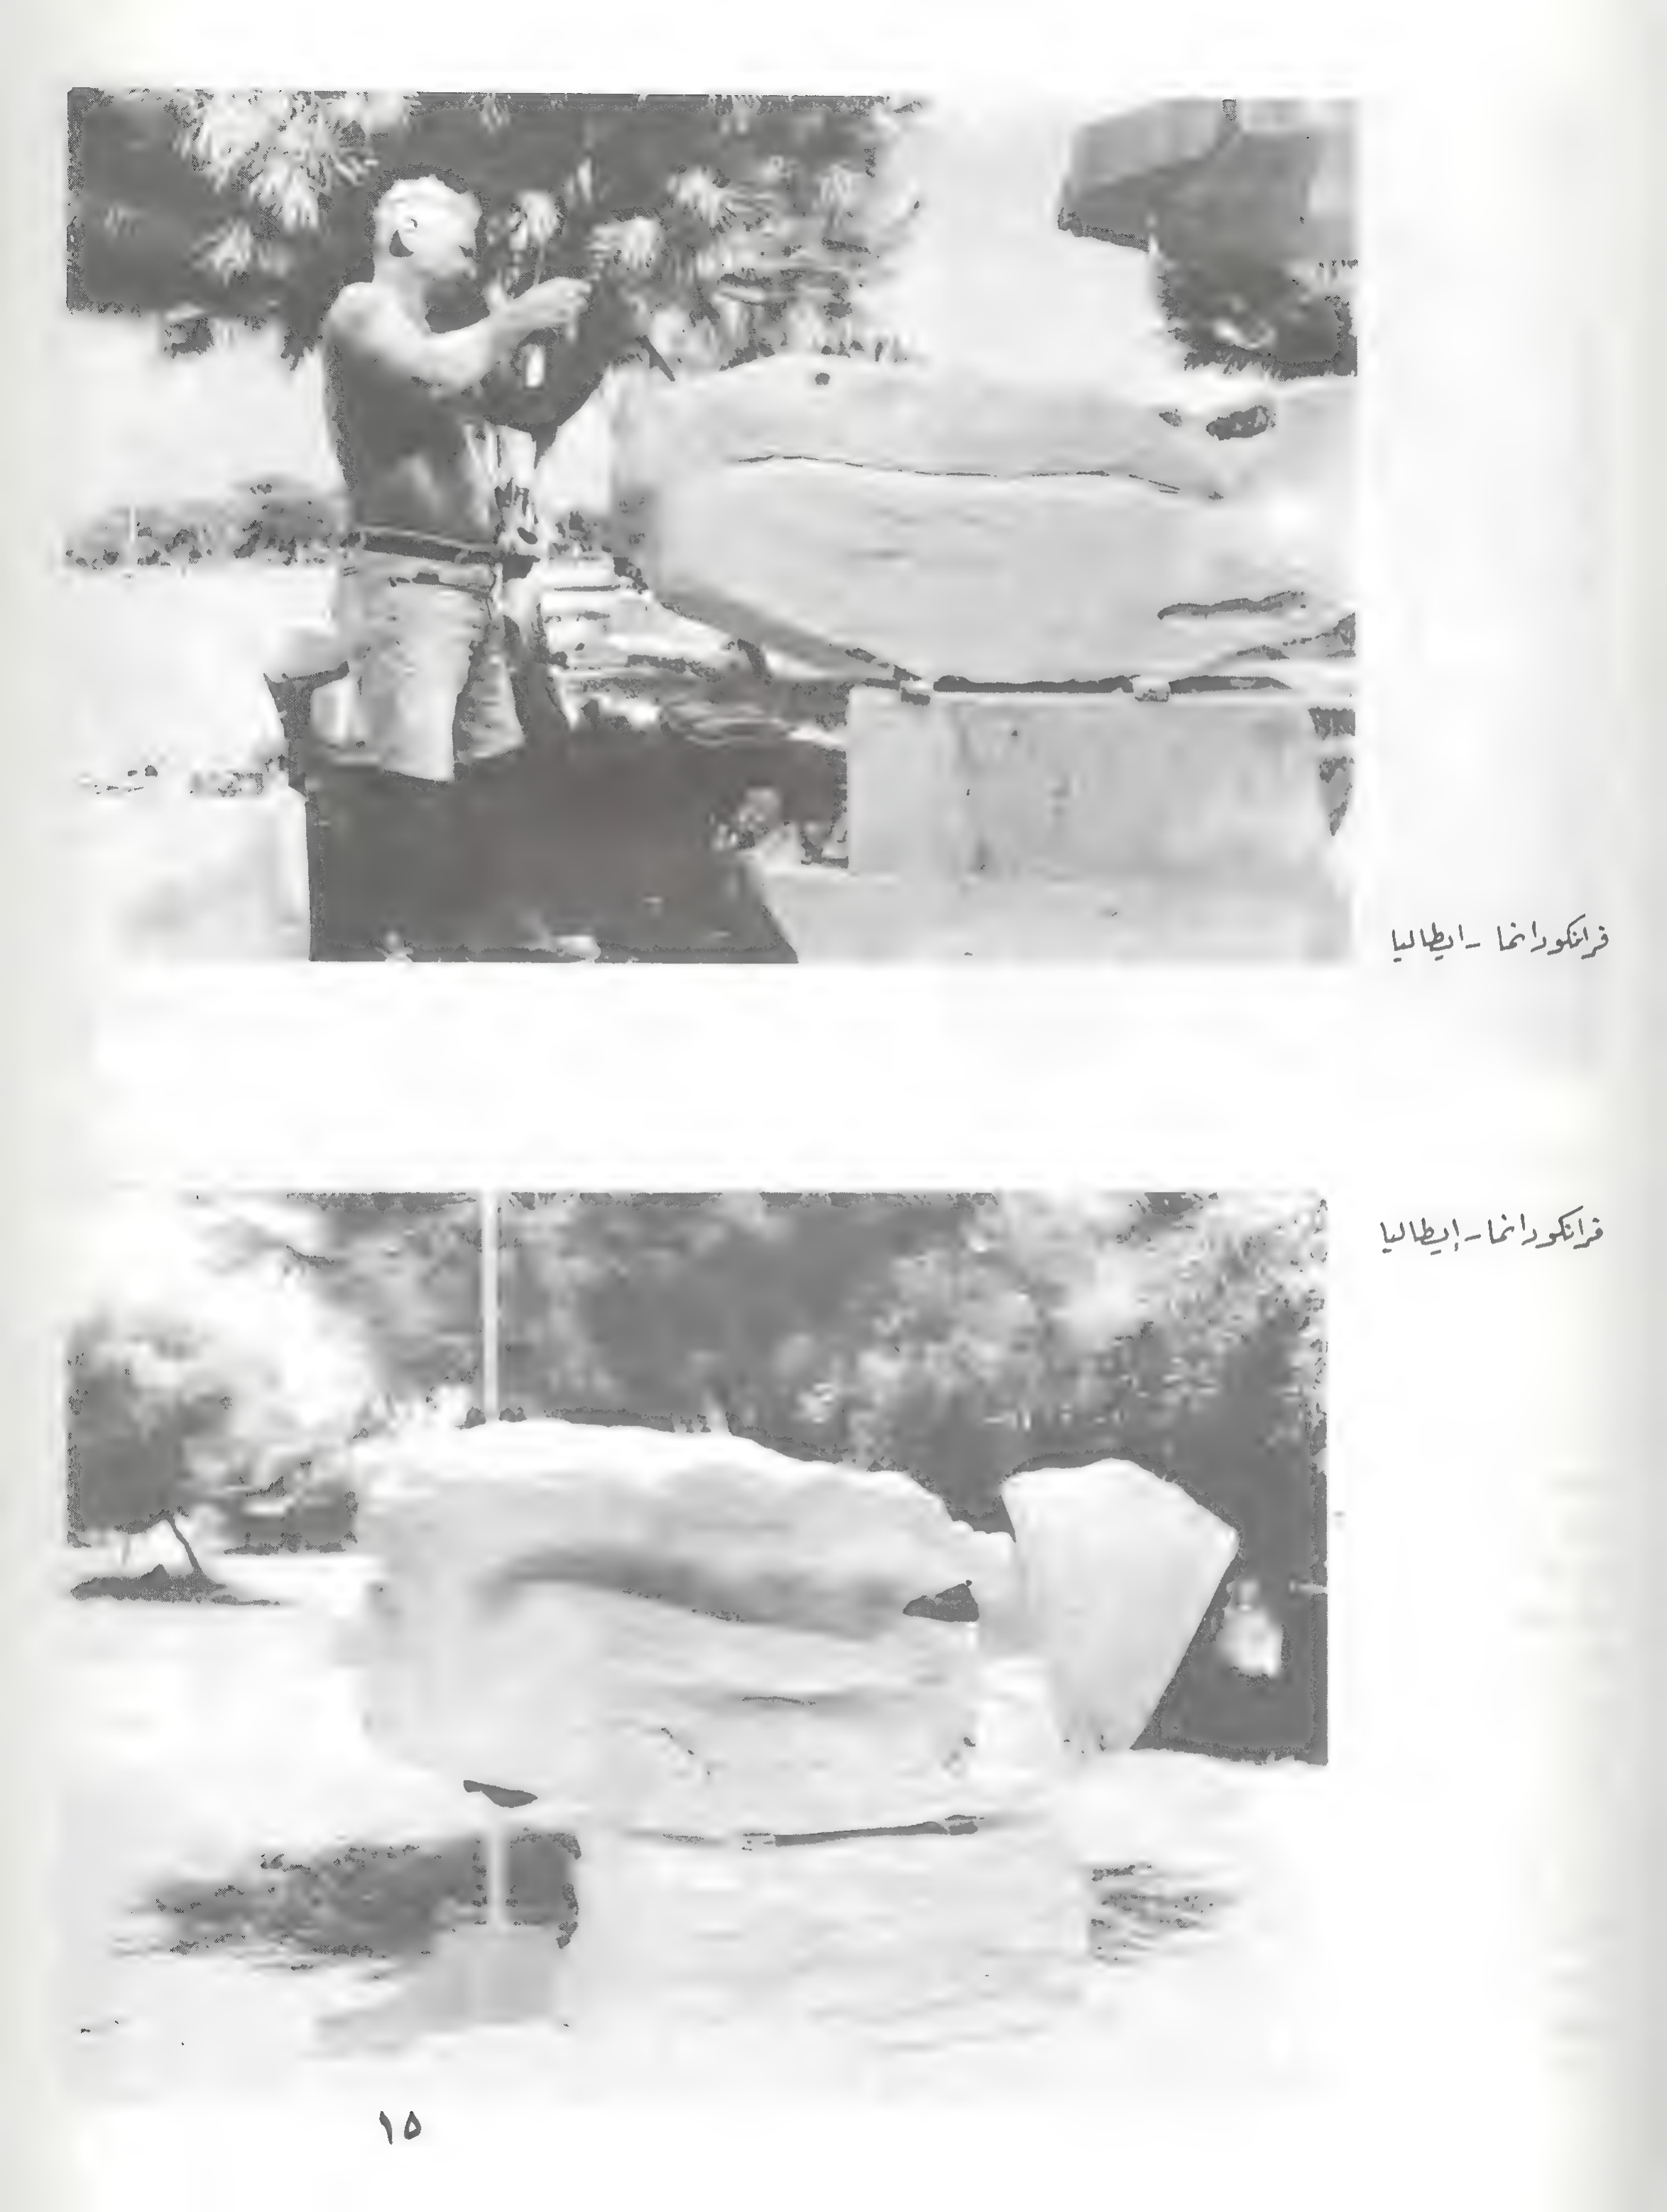 فرانكودانما - ايطاليا
فرانكودانما - إيطاليا
١٥